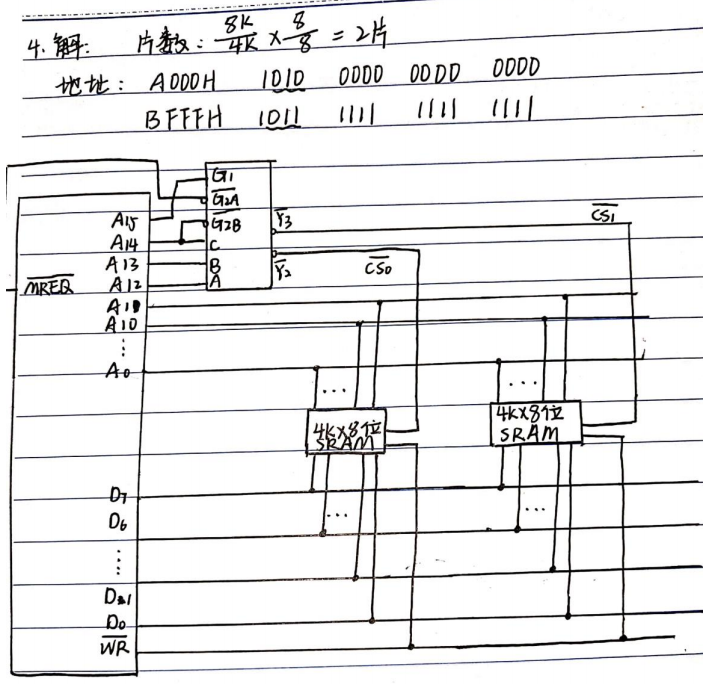 4. 解: 片数: 8K/4K × 8/8 = 2片
地址: A000H 1010 0000 0000 0000
BFFFH 1011 1111 1111 1111
G1
G2A
G2B
C
B
A
Y3
Y2
CS1
CS0
A15
A14
A13
MREQ A12
A11
A10
⋮
A0
... ...
4K×8位 SRAM
4K×8位 SRAM
... ...
D7
D6
⋮
D1
D0
WR